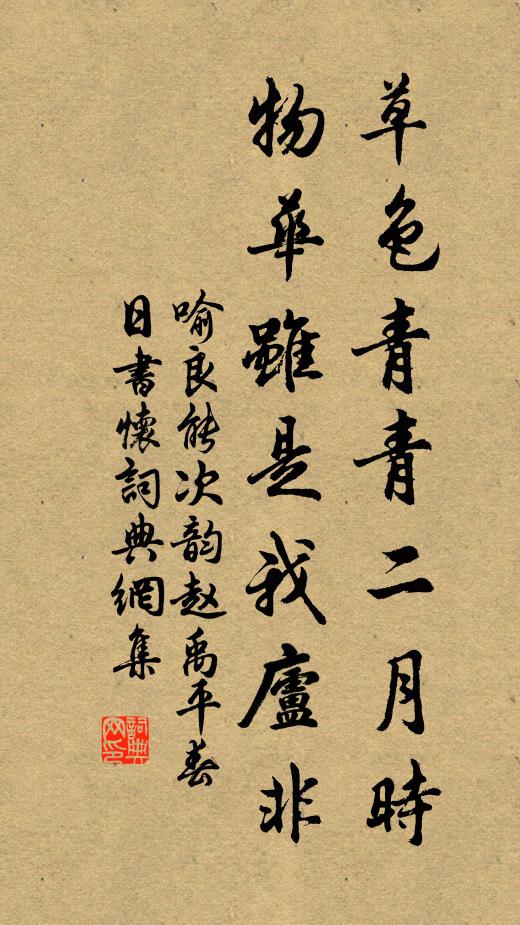 草色青青二月時
物華雖是我廬非
喻良能次韵赵禹平春
日書懷詞典網集
詞典
网印